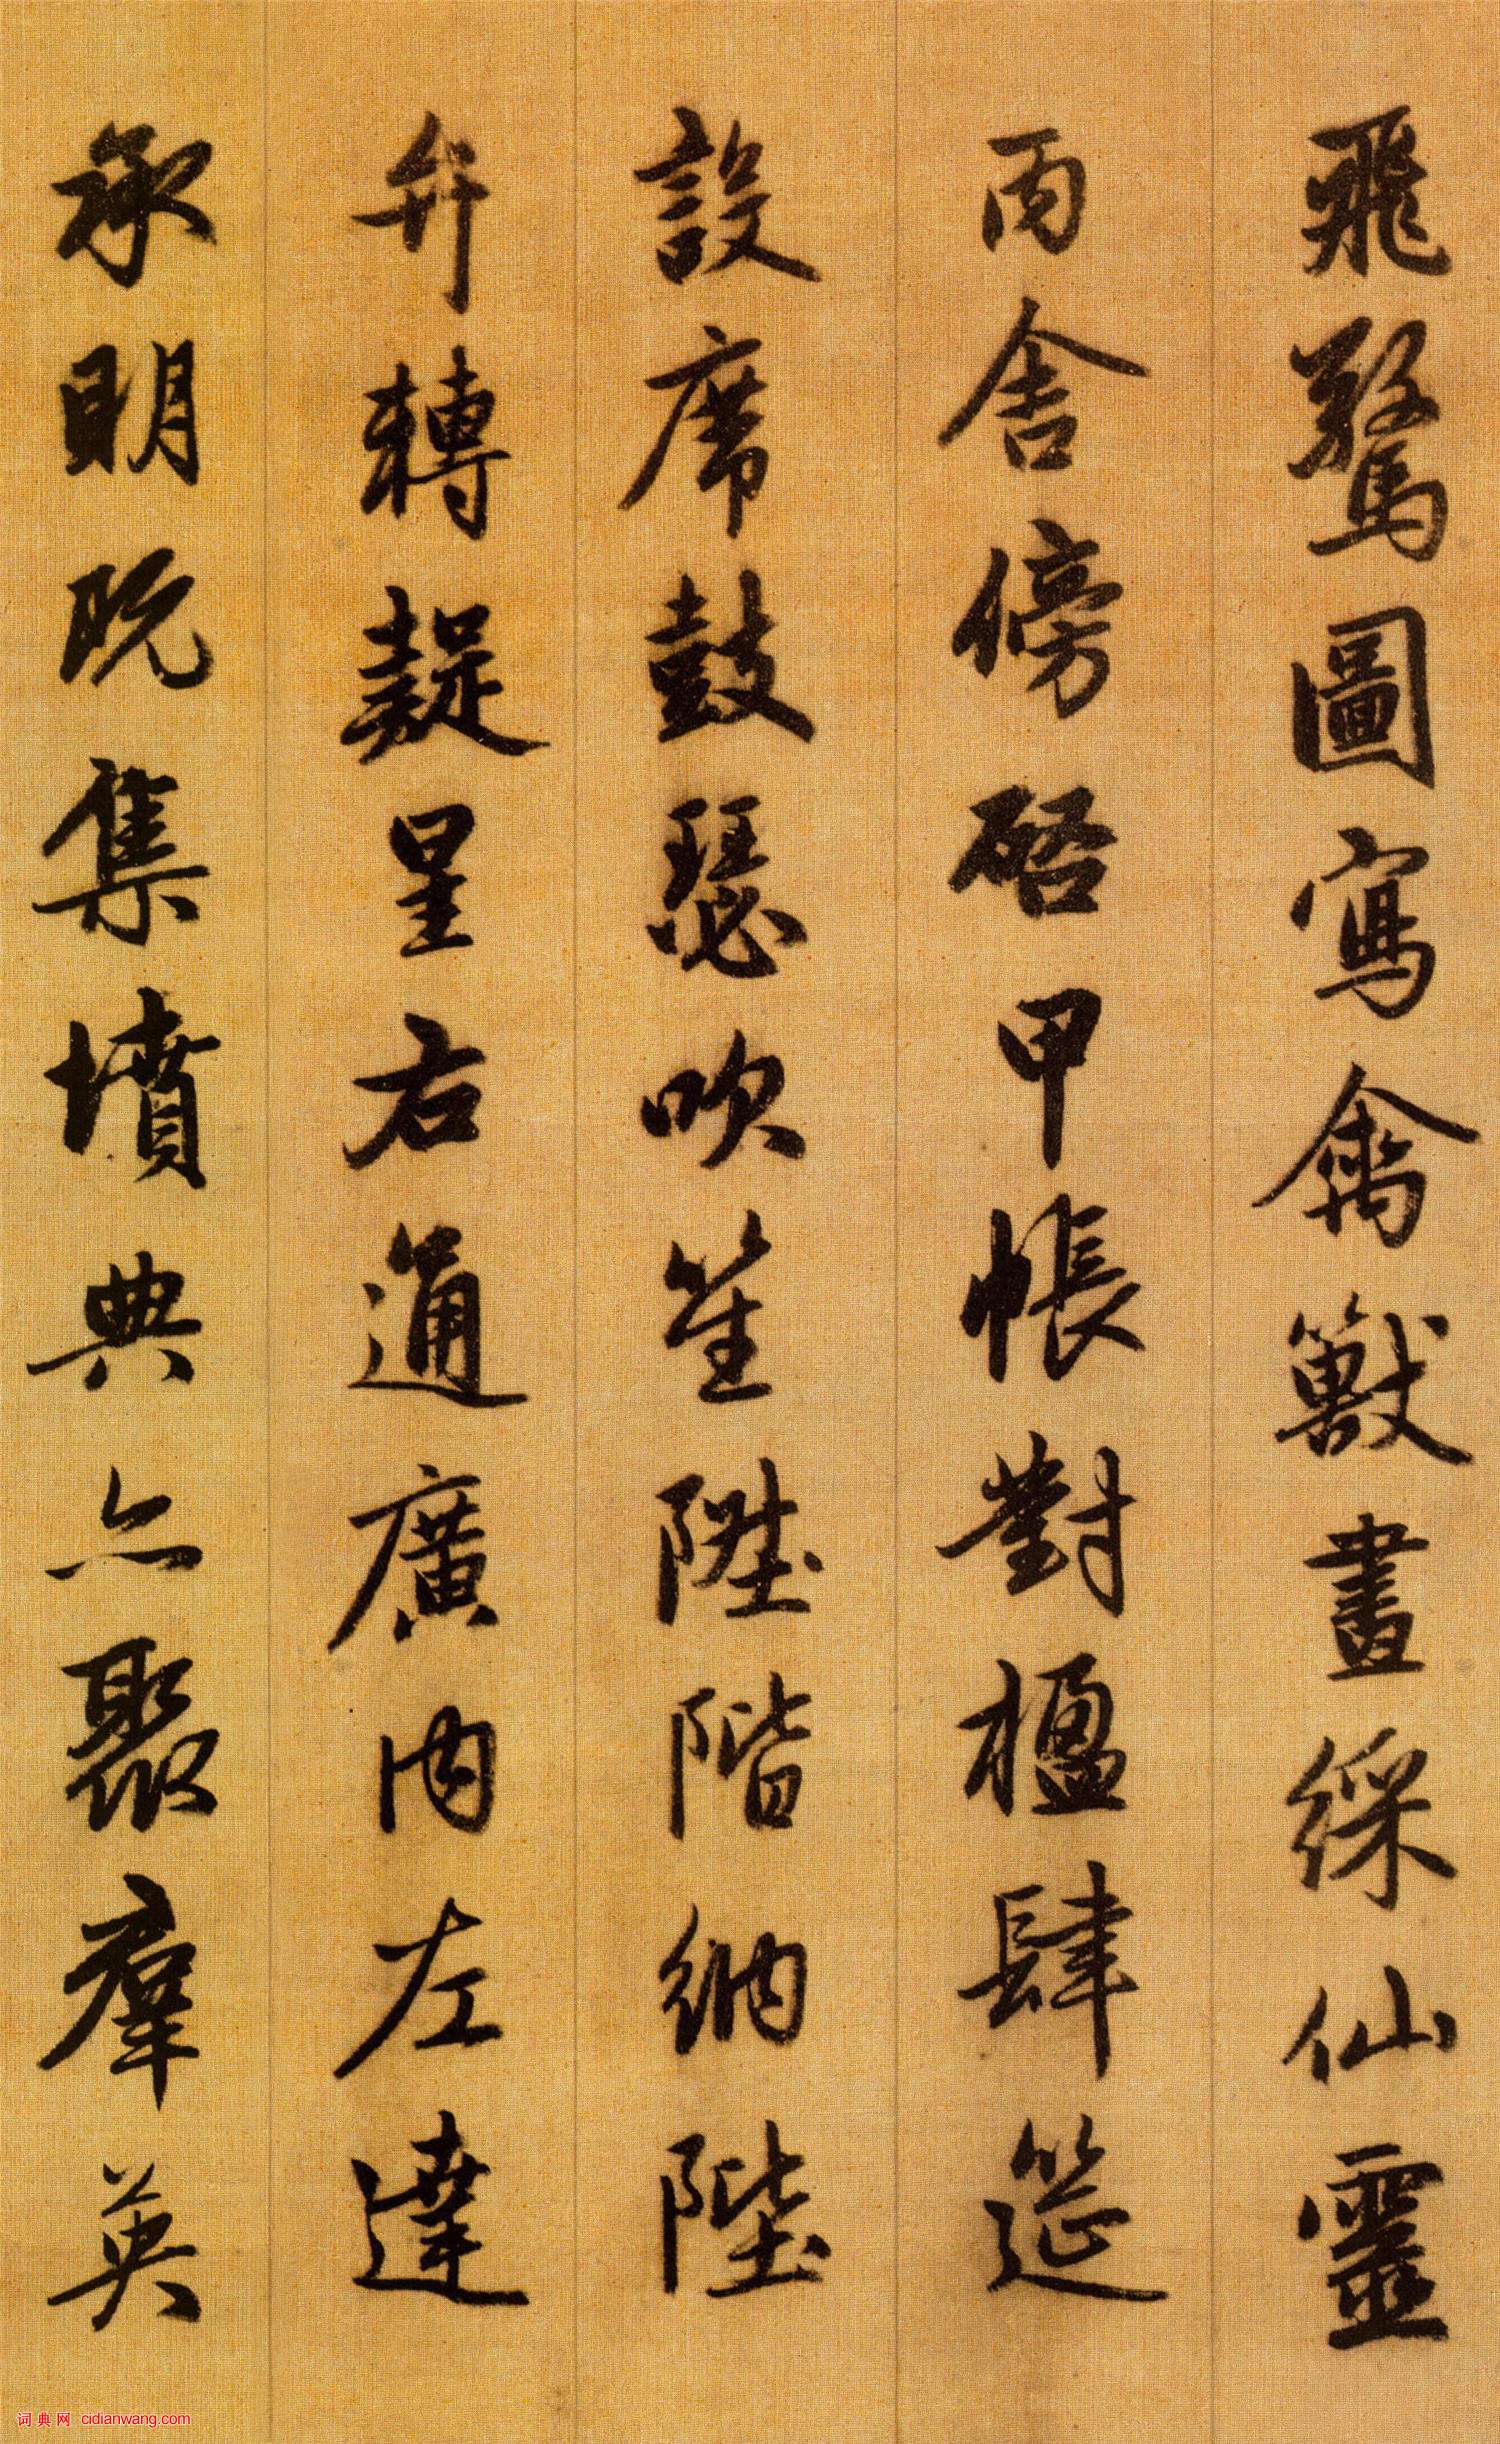 飛驚圖寫禽獸畫綵仙靈
丙舍傍啓甲帳對楹肆筵
設席鼓瑟吹笙陞階納陛
弁轉疑星右通廣内左達
承明既集墳典亦聚羣英
词典网 cidianwang.com